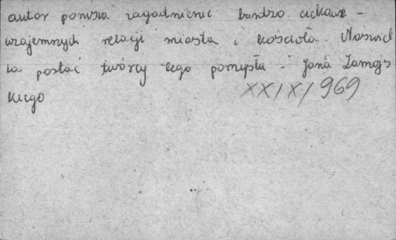 autor porusza zagadnienie bardzo ciekawe -
wzajemnych relacji miasta i kościoła. Naświetl
ia postać twórcy tego pomysłu - Jana Zamojs
kiego
XXIX/969